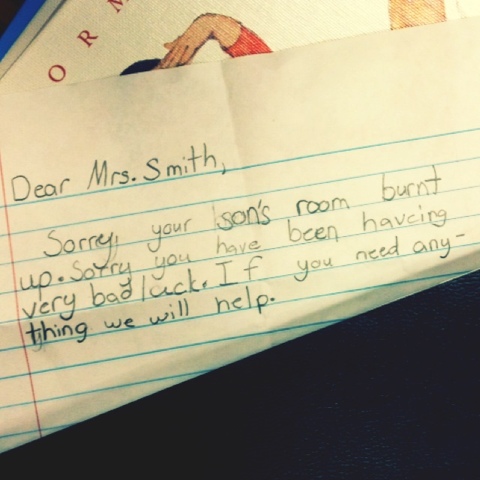 ORM
Dear Mrs. Smith,
Sorry, your son's room burnt
up. Sorry you have been havcing
very bad luck. If you need any-
thing we will help.